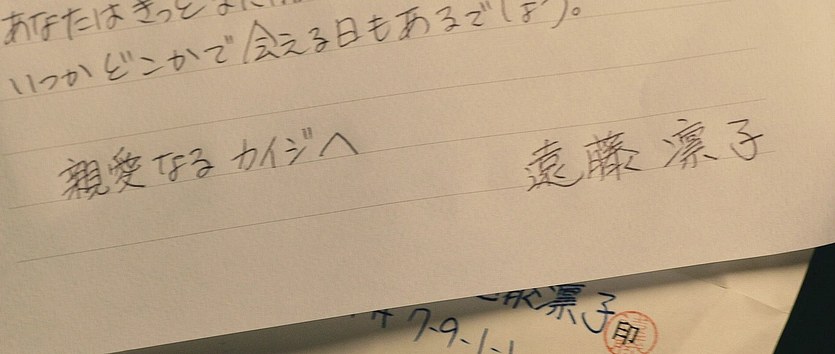 あなたはきっと
いつかどこかで会える日もあるでしょう。
親愛なるカイジへ
遠藤 凛子
凛子 印
7-9-1-1